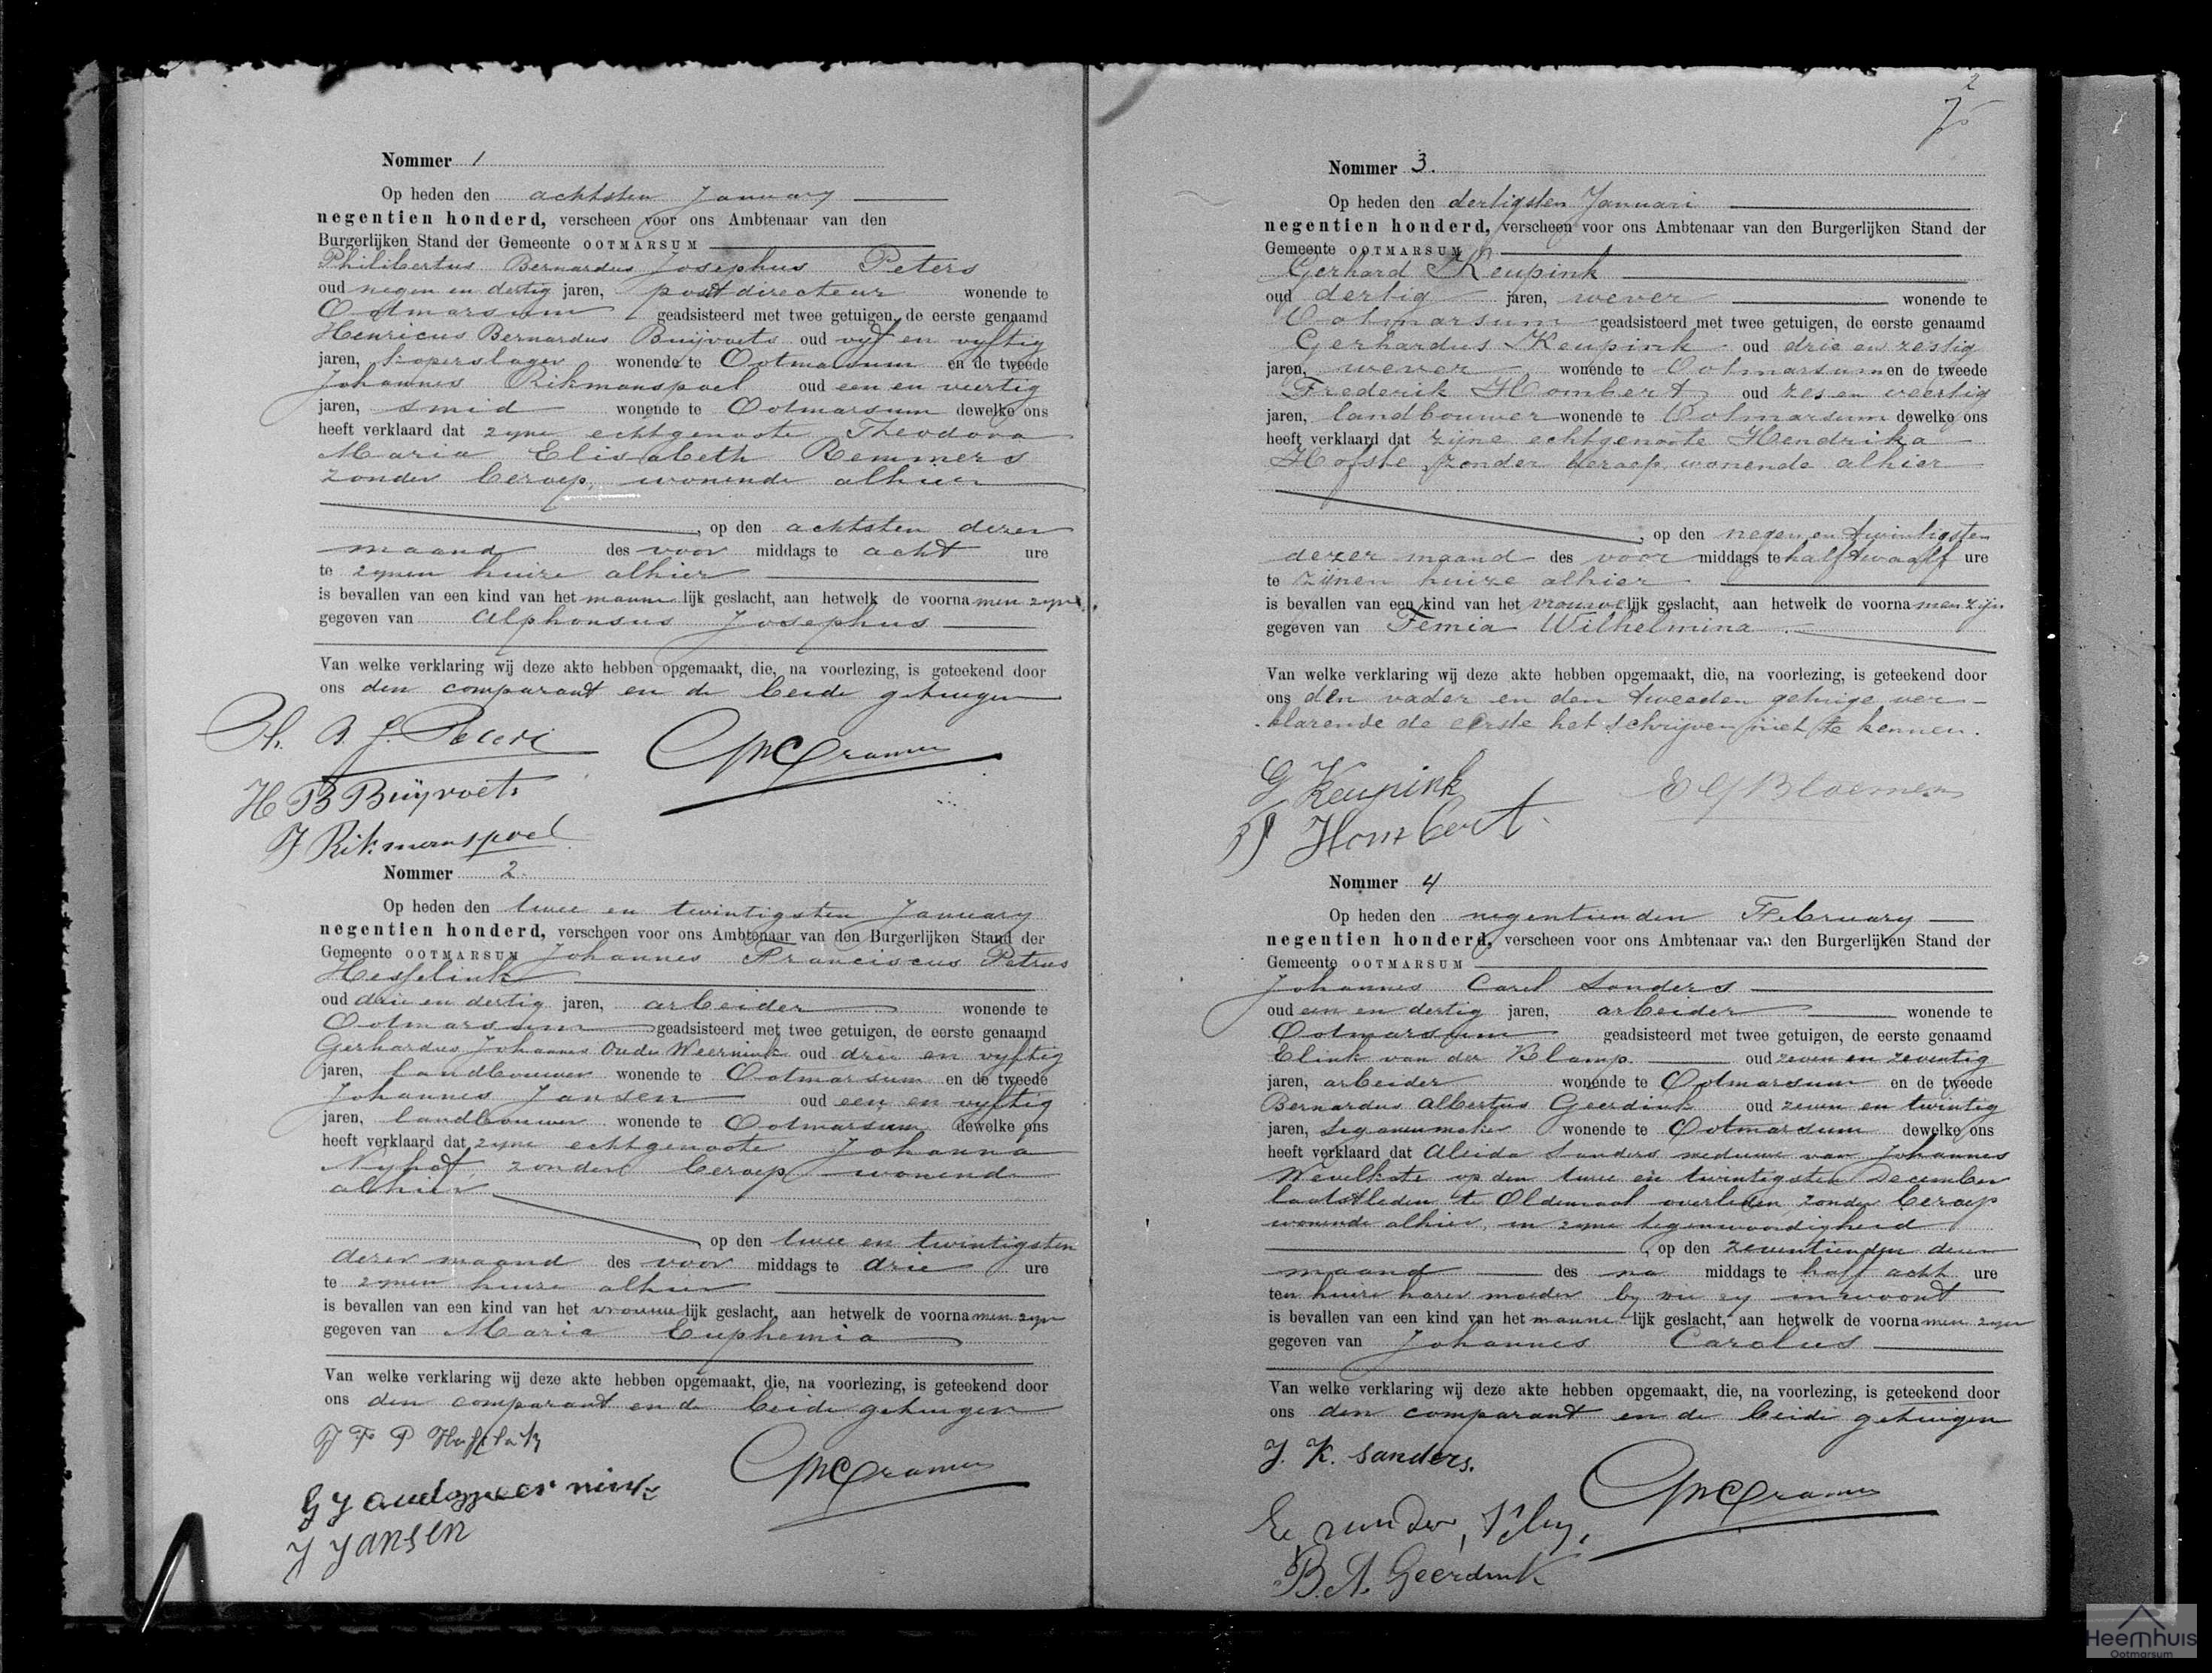 Nommer 1
Op heden den achtsten January
negentien honderd, verscheen voor ons Ambtenaar van den
Burgerlijken Stand der Gemeente OOTMARSUM
Philibertus Bernardus Josephus Peters
oud negen en dertig jaren, postdirecteur wonende te
Ootmarsum geadsisteerd met twee getuigen, de eerste genaamd
Henricus Bernardus Buijvoets oud vyf en vyftig
jaren, koperslager wonende te Ootmarsum en de tweede
Johannes Rikmanspoel oud een en veertig
jaren, smid wonende te Ootmarsum dewelke ons
heeft verklaard dat zyne echtgenoote Theodora
Maria Elisabeth Remmers
zonder beroep, wonende alhier
, op den achtsten dezer
maand des voor middags te acht ure
te zynen huize alhier
is bevallen van een kind van het manne lijk geslacht, aan hetwelk de voorna men zyn
gegeven van Alphonsus Josephus
Van welke verklaring wij deze akte hebben opgemaakt, die, na voorlezing, is geteekend door
ons den comparant en de beide getuigen
Ph. B. J. Peters
CMCramer
H B Buijvoets
J Rikmanspoel
Nommer 2.
Op heden den twee en twintigsten January
negentien honderd, verscheen voor ons Ambtenaar van den Burgerlijken Stand der
Gemeente OOTMARSUM Johannes Franciscus Petrus
Hesselink
oud drie en dertig jaren, arbeider wonende te
Ootmarsum geadsisteerd met twee getuigen, de eerste genaamd
Gerhardus Johannes Oude Weernink oud drie en vyftig
jaren, landbouwer wonende te Ootmarsum en de tweede
Johannes Jansen oud een en vyftig
jaren, landbouwer wonende te Ootmarsum dewelke ons
heeft verklaard dat zyne echtgenoote Johanna
Nyhof, zonder beroep wonende
alhier
, op den twee en twintigsten
dezer maand des voor middags te drie ure
te zynen huize alhier
is bevallen van een kind van het vrouwe lijk geslacht, aan hetwelk de voorna men zyn
gegeven van Maria Euphemia
Van welke verklaring wij deze akte hebben opgemaakt, die, na voorlezing, is geteekend door
ons den comparant en de beide getuigen
J F P
CMCramer
G J
J Jansen
2
Nommer 3.
Op heden den dertigsten Januari
negentien honderd, verscheen voor ons Ambtenaar van den Burgerlijken Stand der
Gemeente OOTMARSUM
Gerhard Keupink
oud dertig jaren, wever wonende te
Ootmarsum geadsisteerd met twee getuigen, de eerste genaamd
Gerhardus Keupink oud drie en zestig
jaren, wever wonende te Ootmarsum en de tweede
Frederik Hombert oud zes en veertig
jaren, landbouwer wonende te Ootmarsum dewelke ons
heeft verklaard dat zijne echtgenoote Hendrika
Hofste, zonder beroep, wonende alhier
, op den negen en twintigsten
dezer maand des voor middags te half twaalf ure
te zijnen huize alhier
is bevallen van een kind van het vrouwelijk geslacht, aan hetwelk de voorna men zijn
gegeven van Femia Wilhelmina
Van welke verklaring wij deze akte hebben opgemaakt, die, na voorlezing, is geteekend door
ons den vader en den tweeden getuige ver-
klarende de eerste het schrijven niet te kennen.
G Keupink
E G Bloemen
Hombert
Nommer 4
Op heden den negentienden February
negentien honderd, verscheen voor ons Ambtenaar van den Burgerlijken Stand der
Gemeente OOTMARSUM
Johannes Carel Sanders
oud een en dertig jaren, arbeider wonende te
Ootmarsum geadsisteerd met twee getuigen, de eerste genaamd
van der Klamp oud zeven en zeventig
jaren, arbeider wonende te Ootmarsum en de tweede
Bernardus Albertus Geerdink oud zeven en twintig
jaren, segarenmaker wonende te Ootmarsum dewelke ons
heeft verklaard dat Aleida Sanders weduwe van Johannes
op den twee en twintigsten December
laatstleden te Oldenzaal overleden, zonder beroep
wonende alhier, in zyne tegenwoordigheid
, op den zeventienden dezer
maand des na middags te half acht ure
ten huize harer moeder by wie zy inwoont
is bevallen van een kind van het manne lijk geslacht, aan hetwelk de voorna men zyn
gegeven van Johannes Carolus
Van welke verklaring wij deze akte hebben opgemaakt, die, na voorlezing, is geteekend door
ons den comparant en de beide getuigen
J. K. Sanders.
CMCramer
B. A. Geerdink
Heemhuis
Ootmarsum